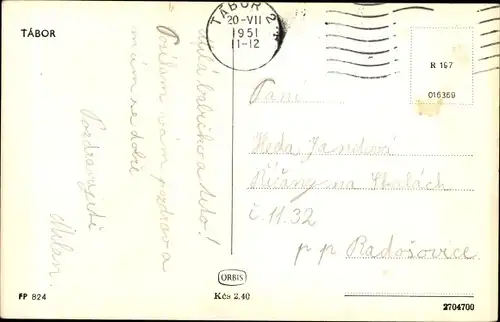 TÁBOR
TÁBOR 2
20-VII
1951
11-12
R 197
016369
Milá babičko a teto!
Posílám vám pozdrav a
mám se dobře
Pozdravujeti
Milan.
Paní
Heda Jandová
Říčany na Skalách
č. 11.32
p p Radošovice
ORBIS
Kčs 2.40
FP 824
2704700